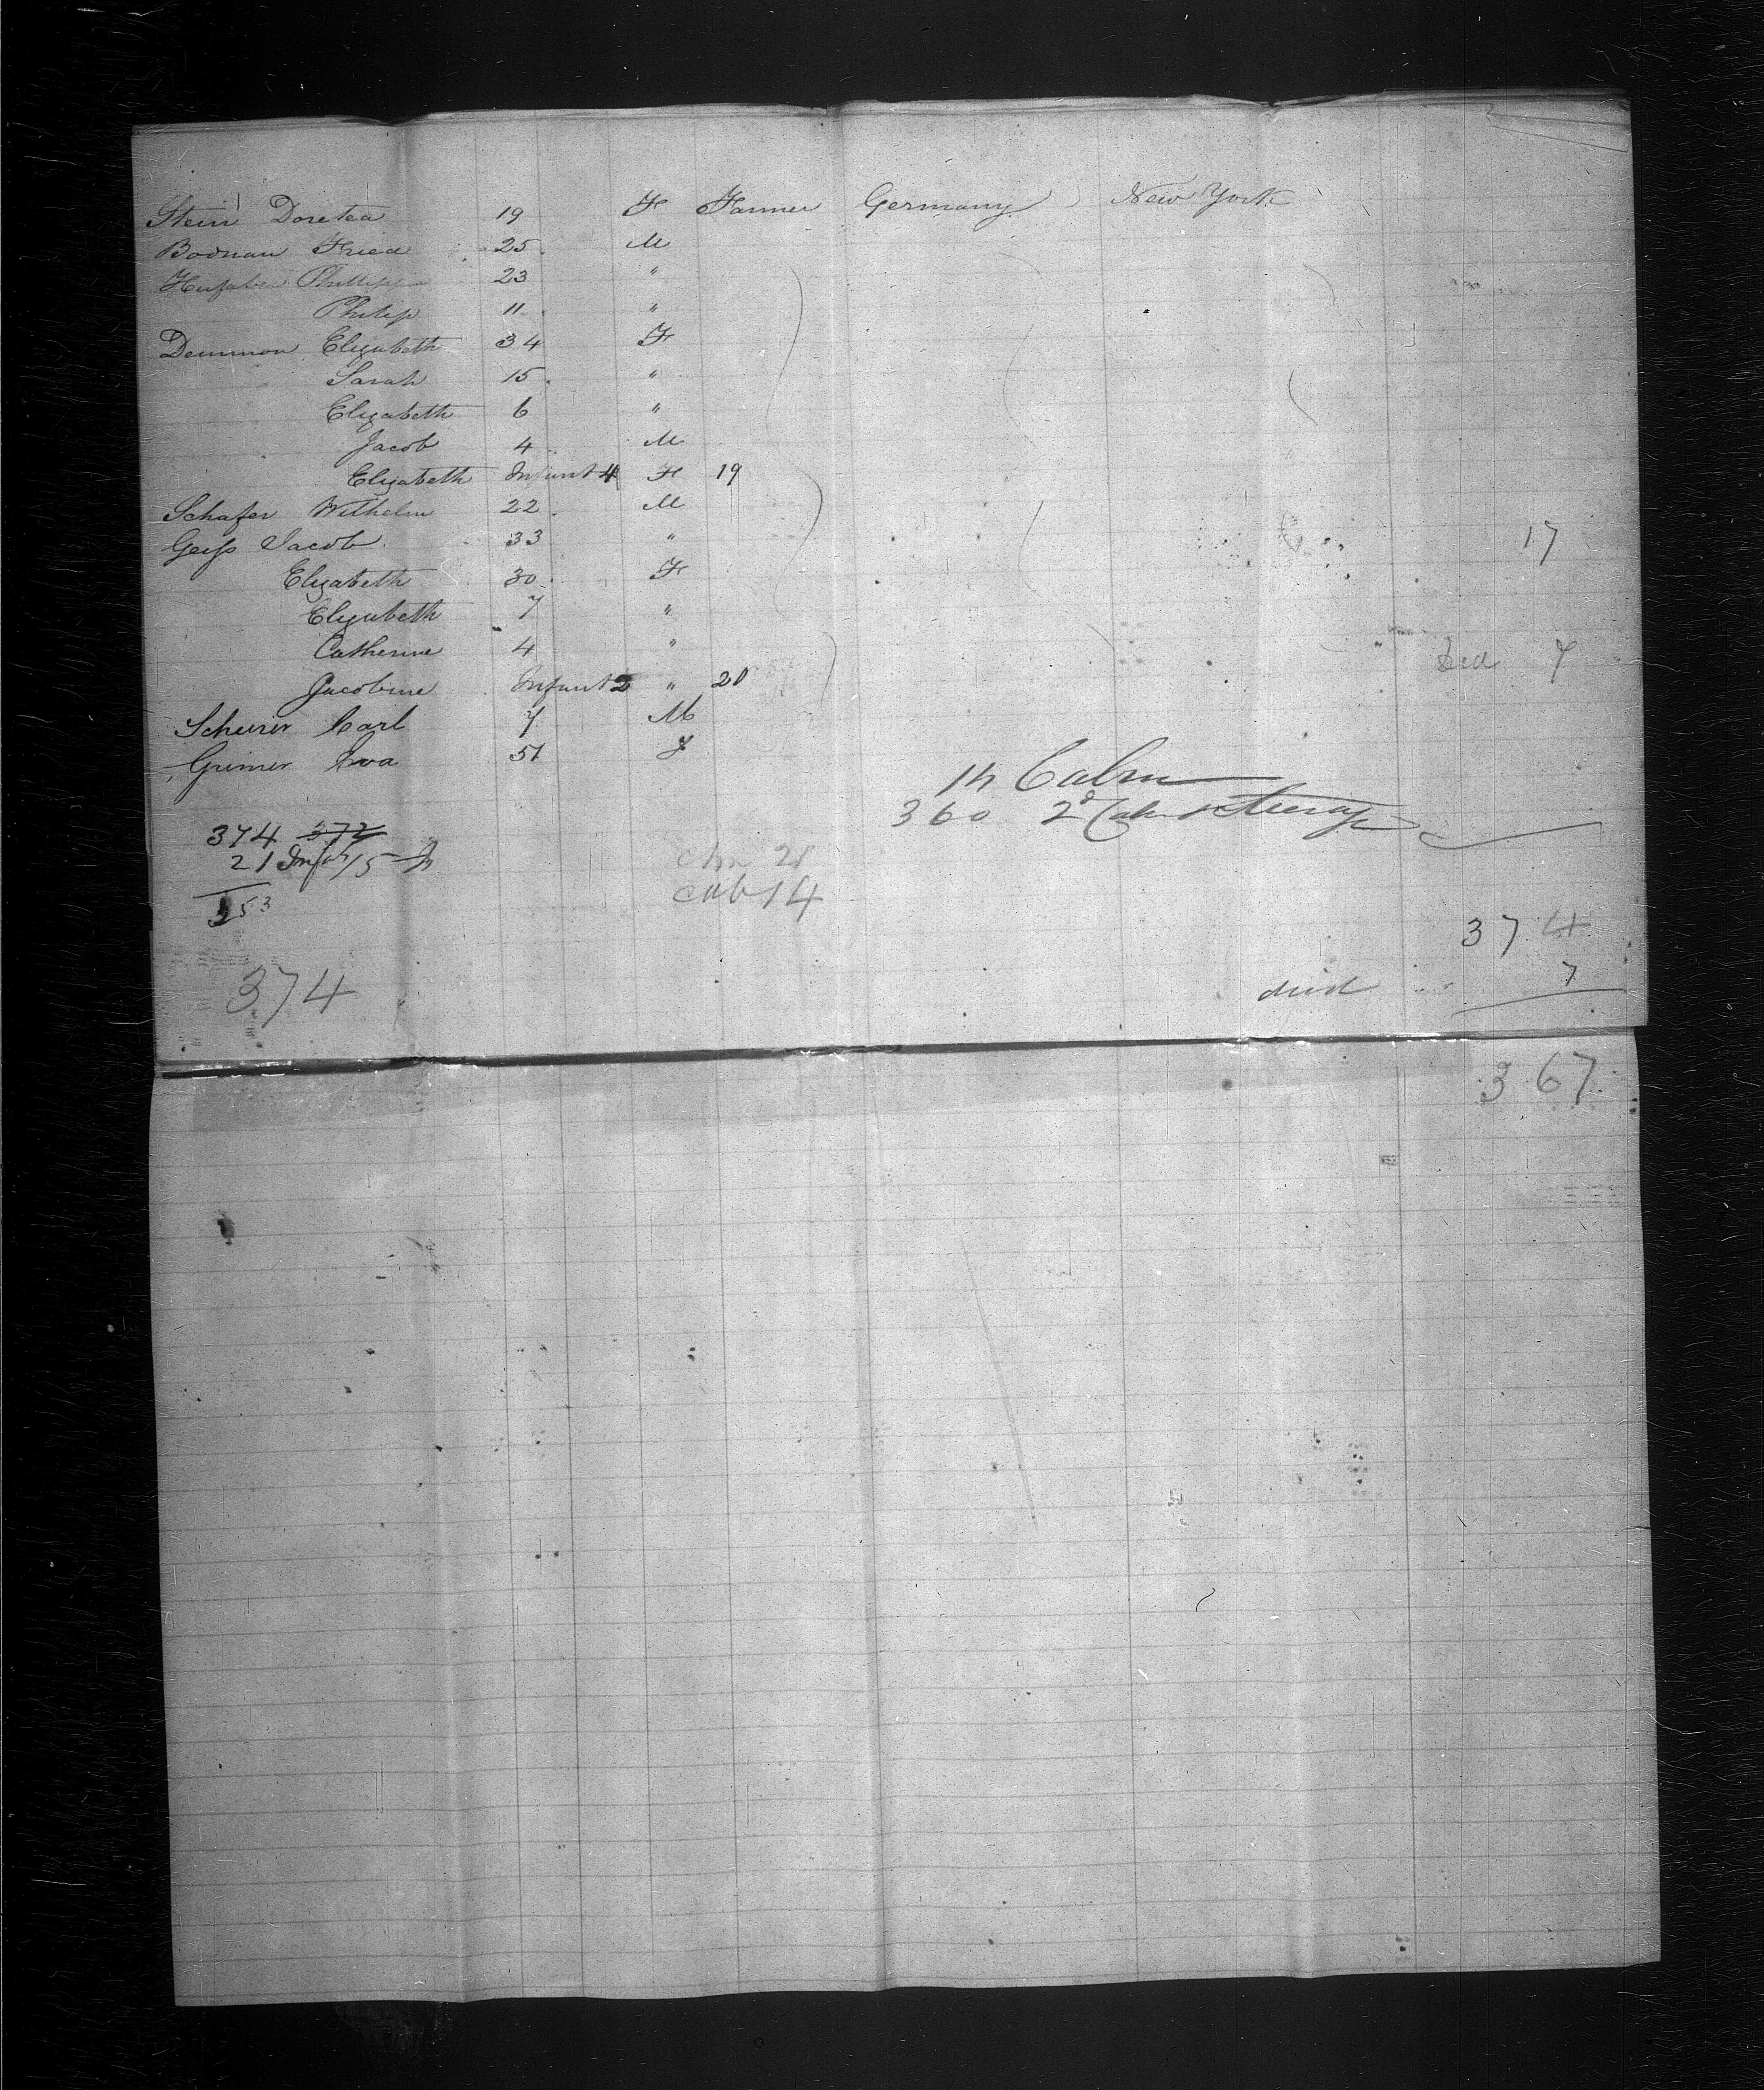 Stein Doretea 19 F Farmer Germany New York
Bodnau Fried 25 M
Hufaber Phillippe 23 "
Philip 11 "
Demmon Elizabeth 34 F
Sarah 15 "
Elizabeth 6 "
Jacob 4 M
Elizabeth Infant 4 F 19
Schafer Wilhelm 22 M
Geiſs Jacob 33 " 17
Elizabeth 30 F
Elizabeth 7 "
Catherine 4 "
Jacobine Infant 2 " 20
Scheurer Carl 7 M
Grimer Eva 51 F
14 Cabin
360 2d Cab & Steerage
374 372
21 Inf 15
353
21
cab 14
374
374
died 7
367